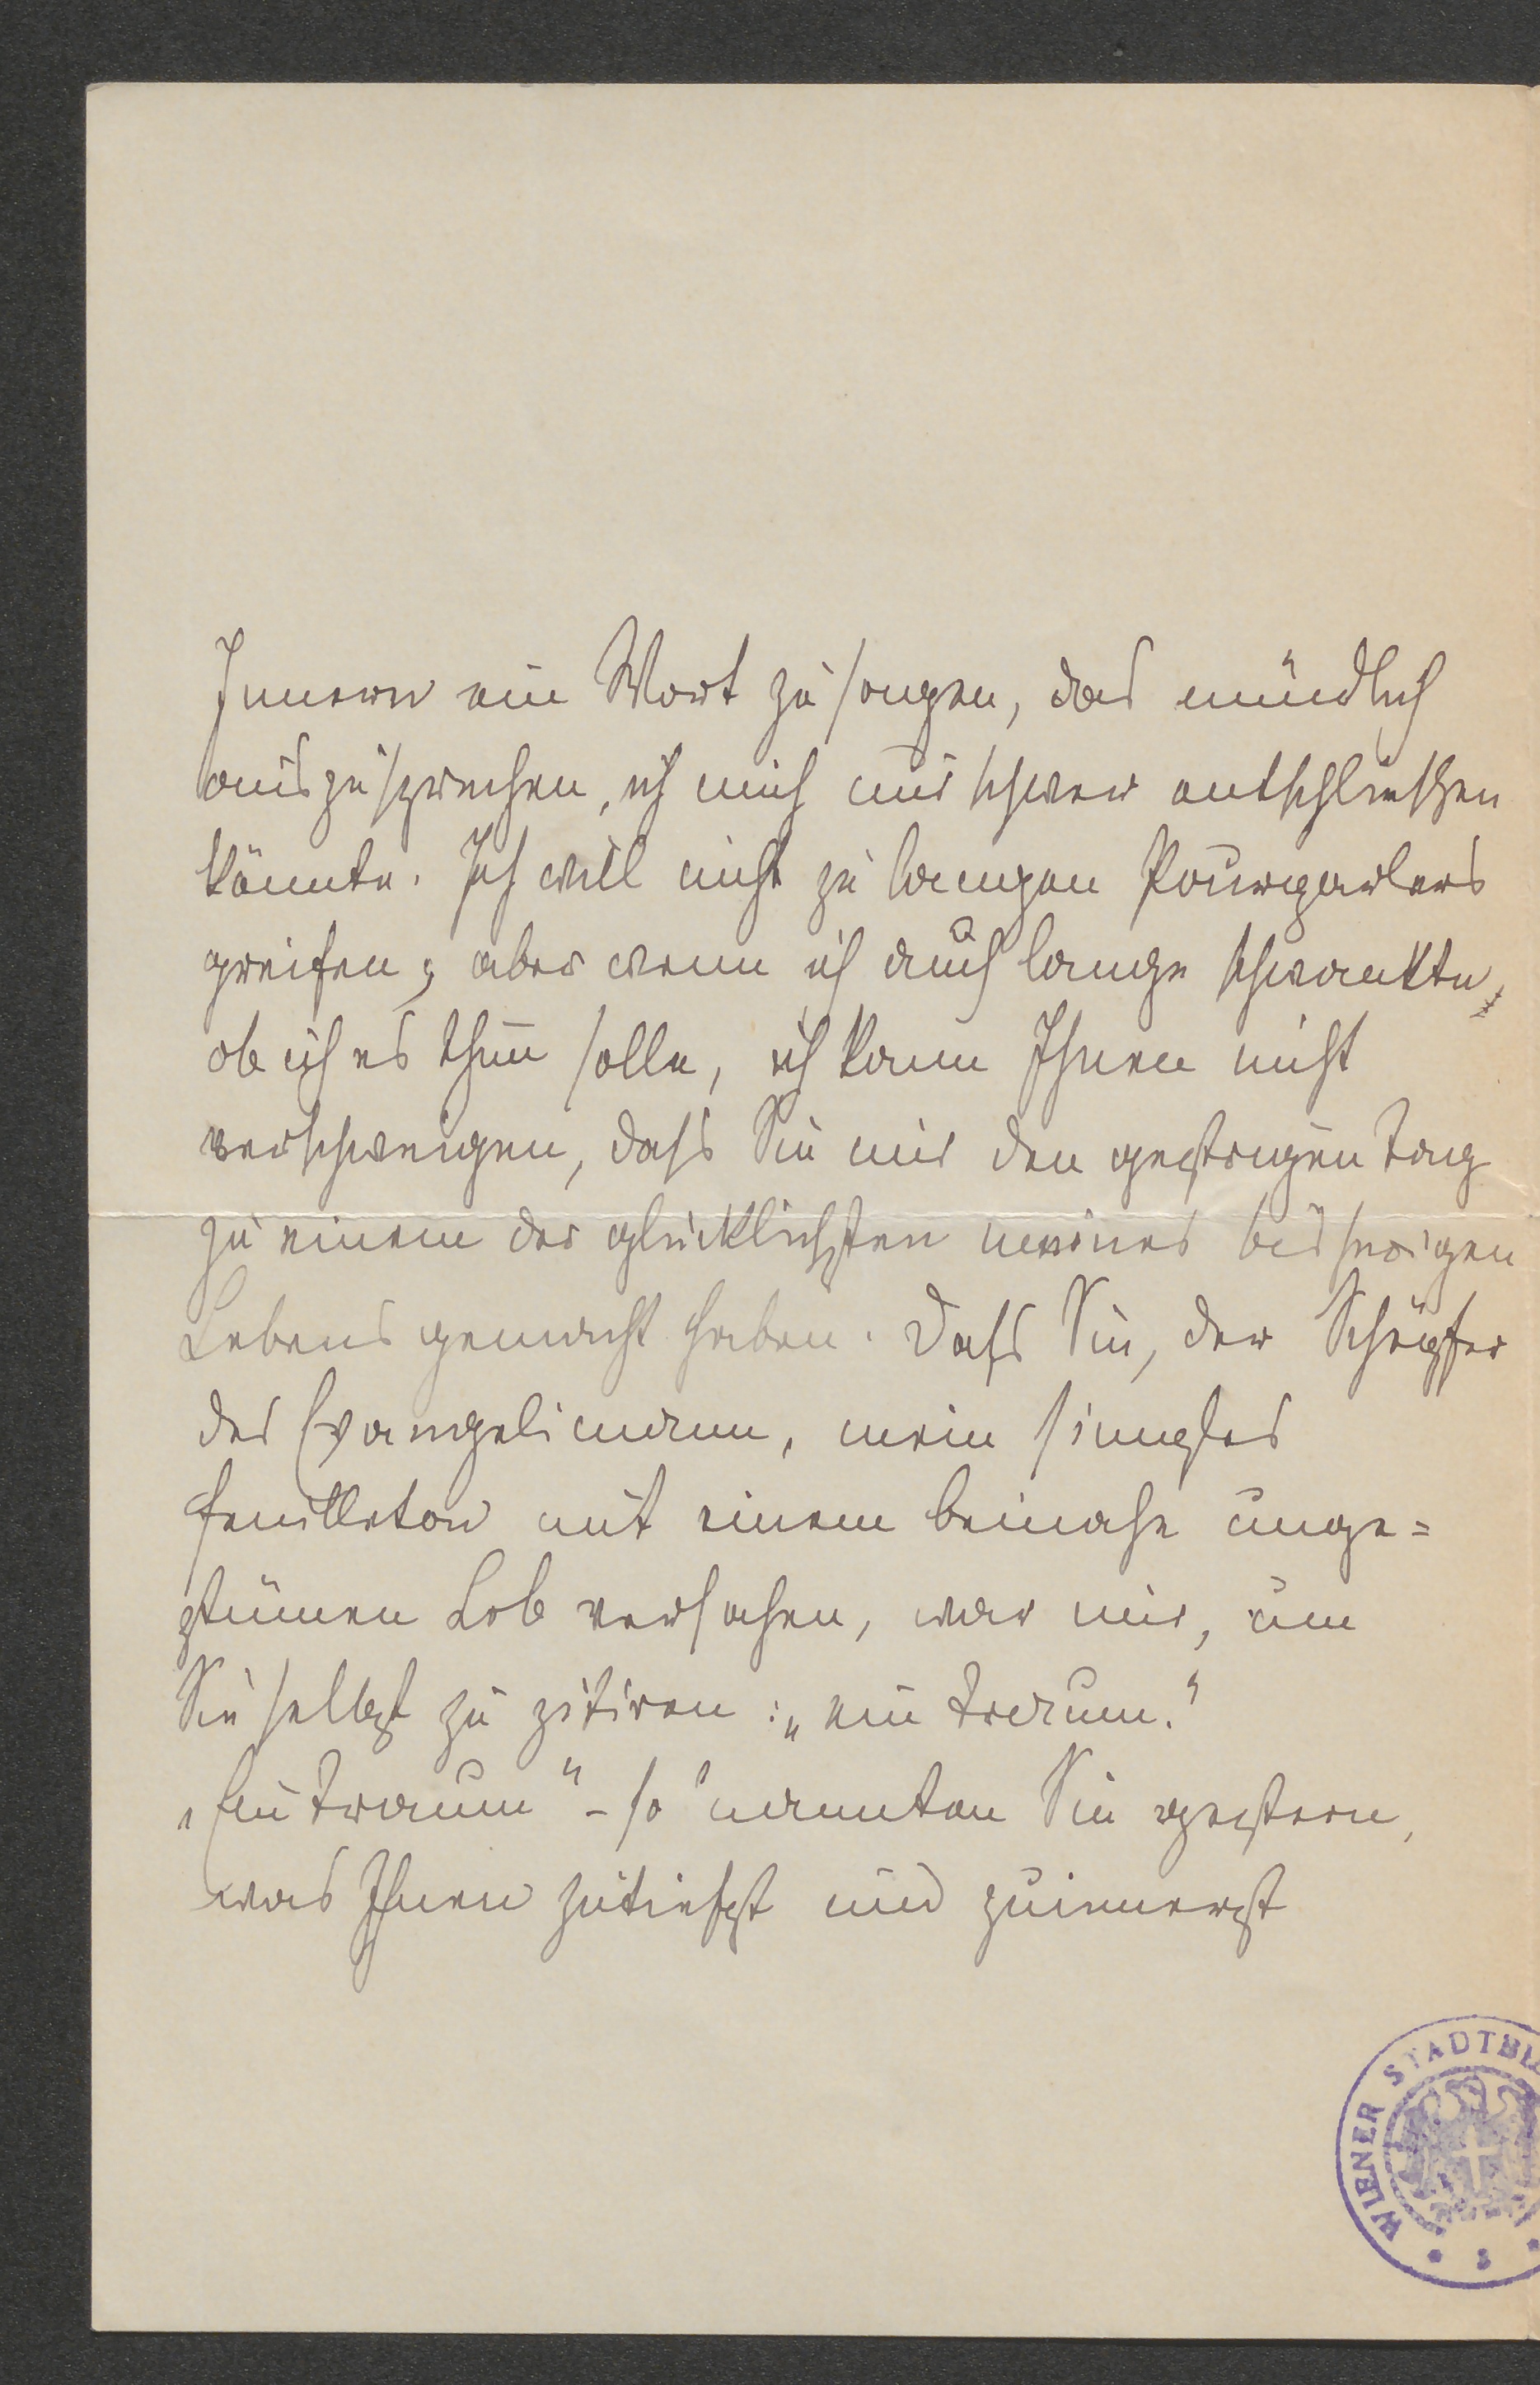 Innern ein Wort zu sagen, das mündlich
auszusprechen, ich mich nur schwer entschließen
könnte. Ich will nicht zu langen Pourparlers
greifen; aber wenn ich auch lange schwankte,
ob ich es thun solle, ich kann Ihnen nicht
verschweigen, dass Sie mir den gestrigen Tag
zu einem der glücklichsten meines bisherigen
Lebens gemacht haben. Dass Sie, der Schöpfer
des Evangelimann, mein simples
Feuilleton mit einem beinahe unge=
stümen Lob versahen, war mir, um
Sie selbst zu zitiren: „ein Traum."
„Ein Traum" - so nannten Sie gestern,
was Ihnen zutiefst und zuinnerst
WIENER STADTBI